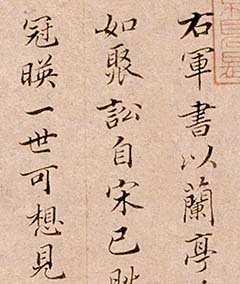 右軍書以蘭亭
如聚訟自宋已
冠暎一世可想見